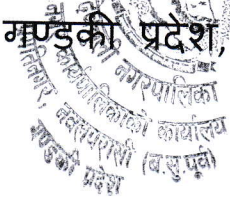 गण्डकी प्रदेश,
नगरपालिका
कार्यपालिकाको कार्यालय
नवलपरासी (ब.सु.पूर्व)
प्रदेश